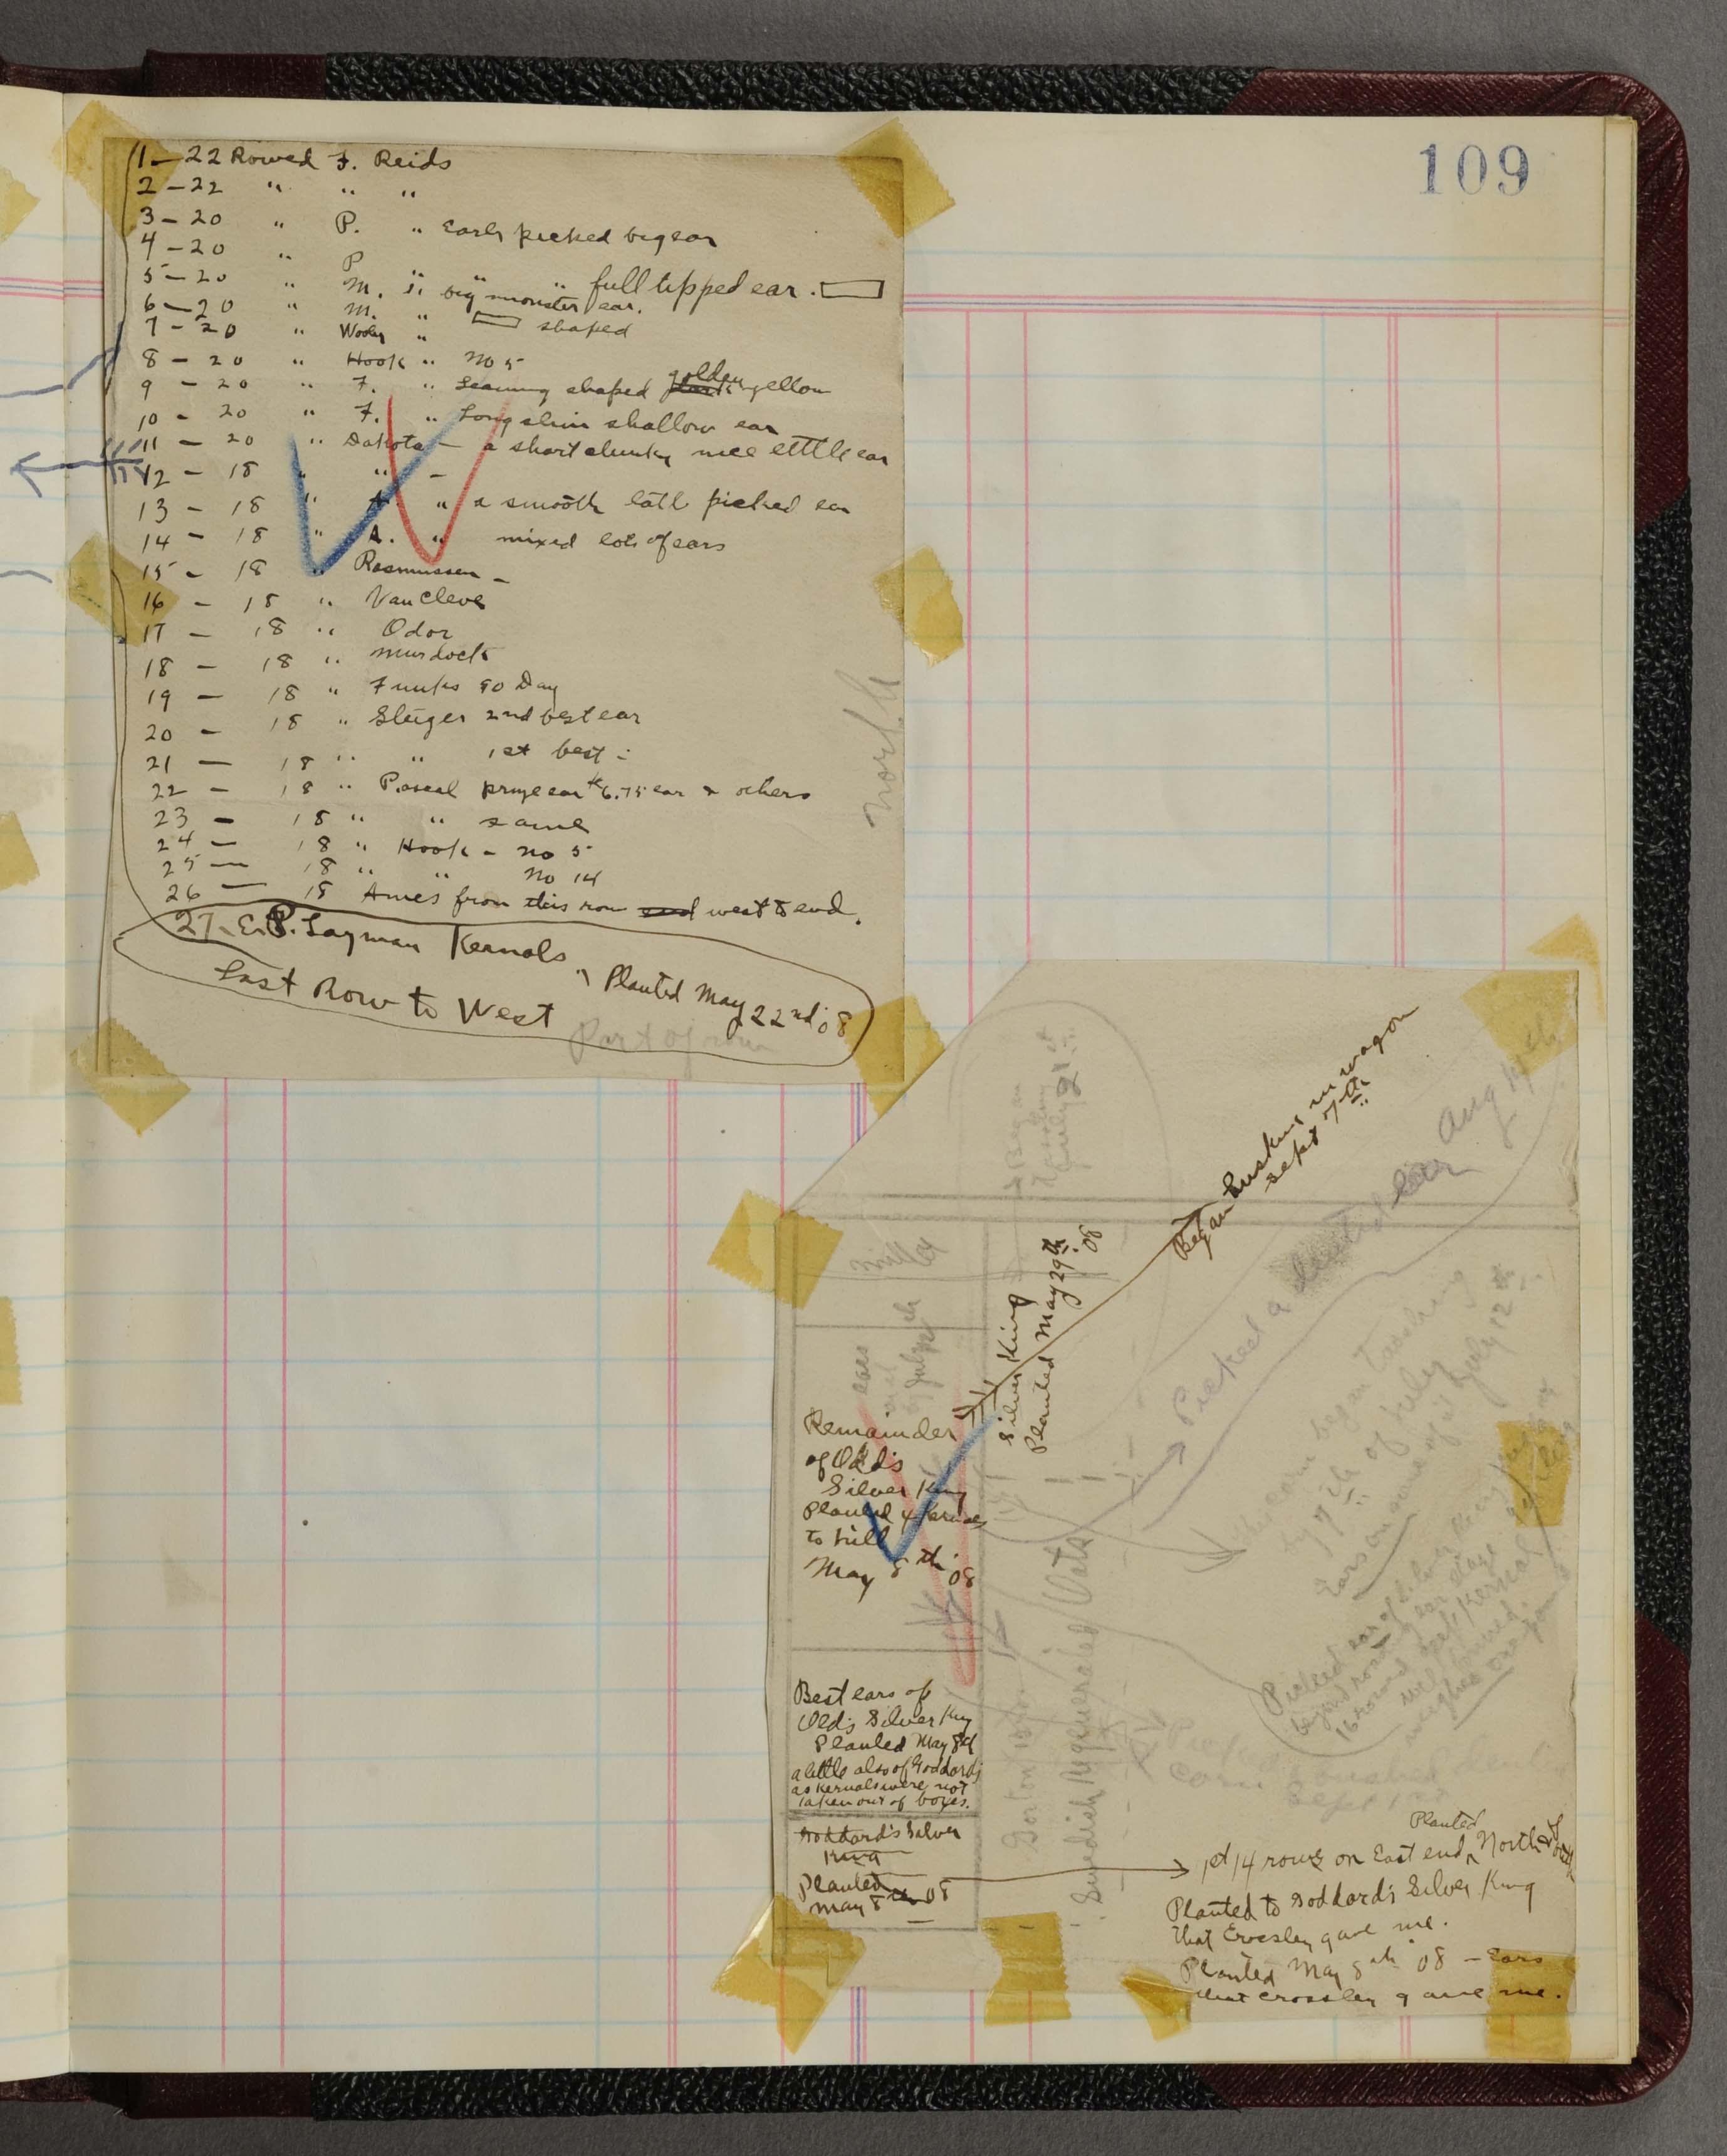 109
1 — 22 Rowed F. Reids
2 — 22 " " "
3 — 20 " P. " Early picked big ear
4 — 20 " P " " " full tipped ear.
5 — 20 " M. " big monster ear.
6 — 20 " M. " shaped
7 — 20 " "
8 — 20 " Hook " No 5
9 — 20 " F. " Leaming shaped golden yellow
10 — 20 " F. " Long slim shallow ear
11 — 20 " Dakota — a short chunky nice little ear
12 — 18 " " —
13 — 18 " A. " a smooth late picked ear
14 — 18 " A. " mixed lots of ears
15 — 18 " Rasmussen —
16 — 18 " Van Cleve
17 — 18 " Odor
18 — 18 " Murdock
19 — 18 " Funks 90 Day
20 — 18 " Steiger 2nd best ear
21 — 18 " " 1st best —
22 — 18 " Pascal prize ear $6.75 ear & others
23 — 18 " " same
24 — 18 " Hook — No 5
25 — 18 " " No 14
26 — 18 Ames from this row west to end.
27 E.P. Layman Kernals
Last Row to West
" Planted May 22nd '08
Part of row
North
Began husking in wagon
Sept 7th
Picked a dented ear Aug 14th
Began
tasseling
July 21st
Silver King
Planted May 29th '08
Millet
ears
July
Remainder
of Old's
Silver King
Planted 4 Kernals
to hill
May 8th '08
began tasseling
7th of July
Ears on some of it July 12th
Picked ear of Silver King
beyond roasting ear stage
16 rowed Kernal
well formed.
weighed
Picked
corn
Sept 1st
Swedish Regenerated Oats
Best ears of
Old's Silver King
Planted May 8th
a little also of Goddards
as kernals were not
taken out of boxes.
Goddard's Silver
King
Planted
May 8th 08
1st 14 rows on East end Planted North & South
Planted to Goddard's Silver King
that Crossley gave me.
Planted May 8th '08 — Ears
that Crossley gave me.